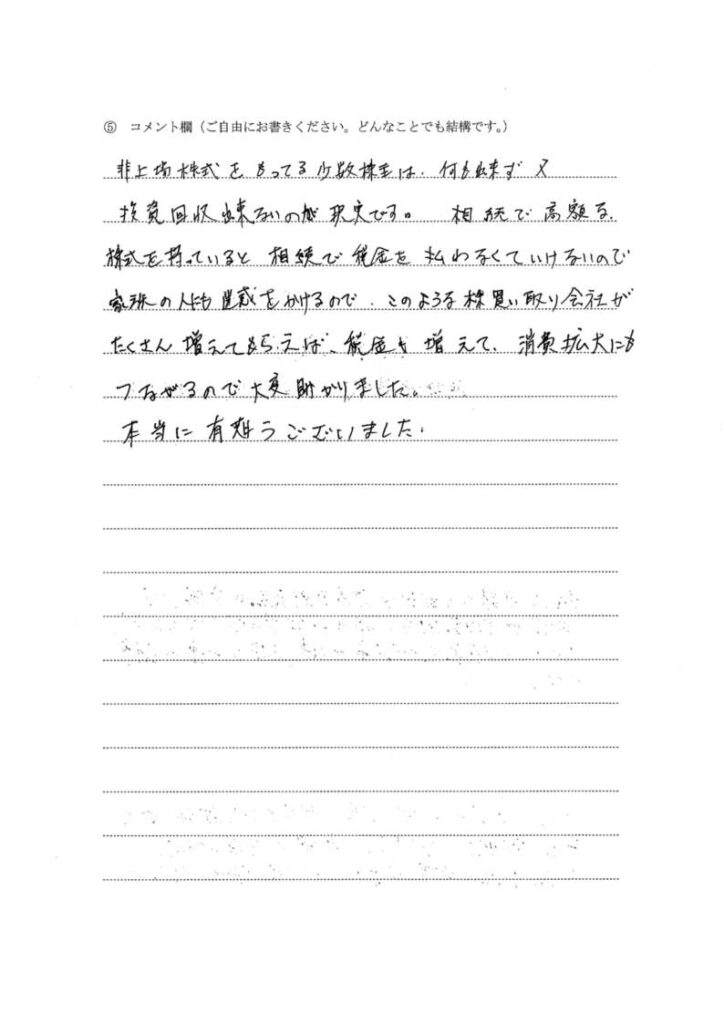 ⑤ コメント欄（ご自由にお書きください。どんなことでも結構です。）
非上場株式をもってる少数株主は、何も出来ず 又
投資回収出来ないのが現実です。 相続で高額な
株式を持っていると 相続で税金を払わなくていけないので
家族の人にも迷惑をかけるので、このような株買い取り会社が
たくさん増えてもらえば、税金も増えて、消費拡大にも
つながるので大変助かりました。
本当に有難うございました。